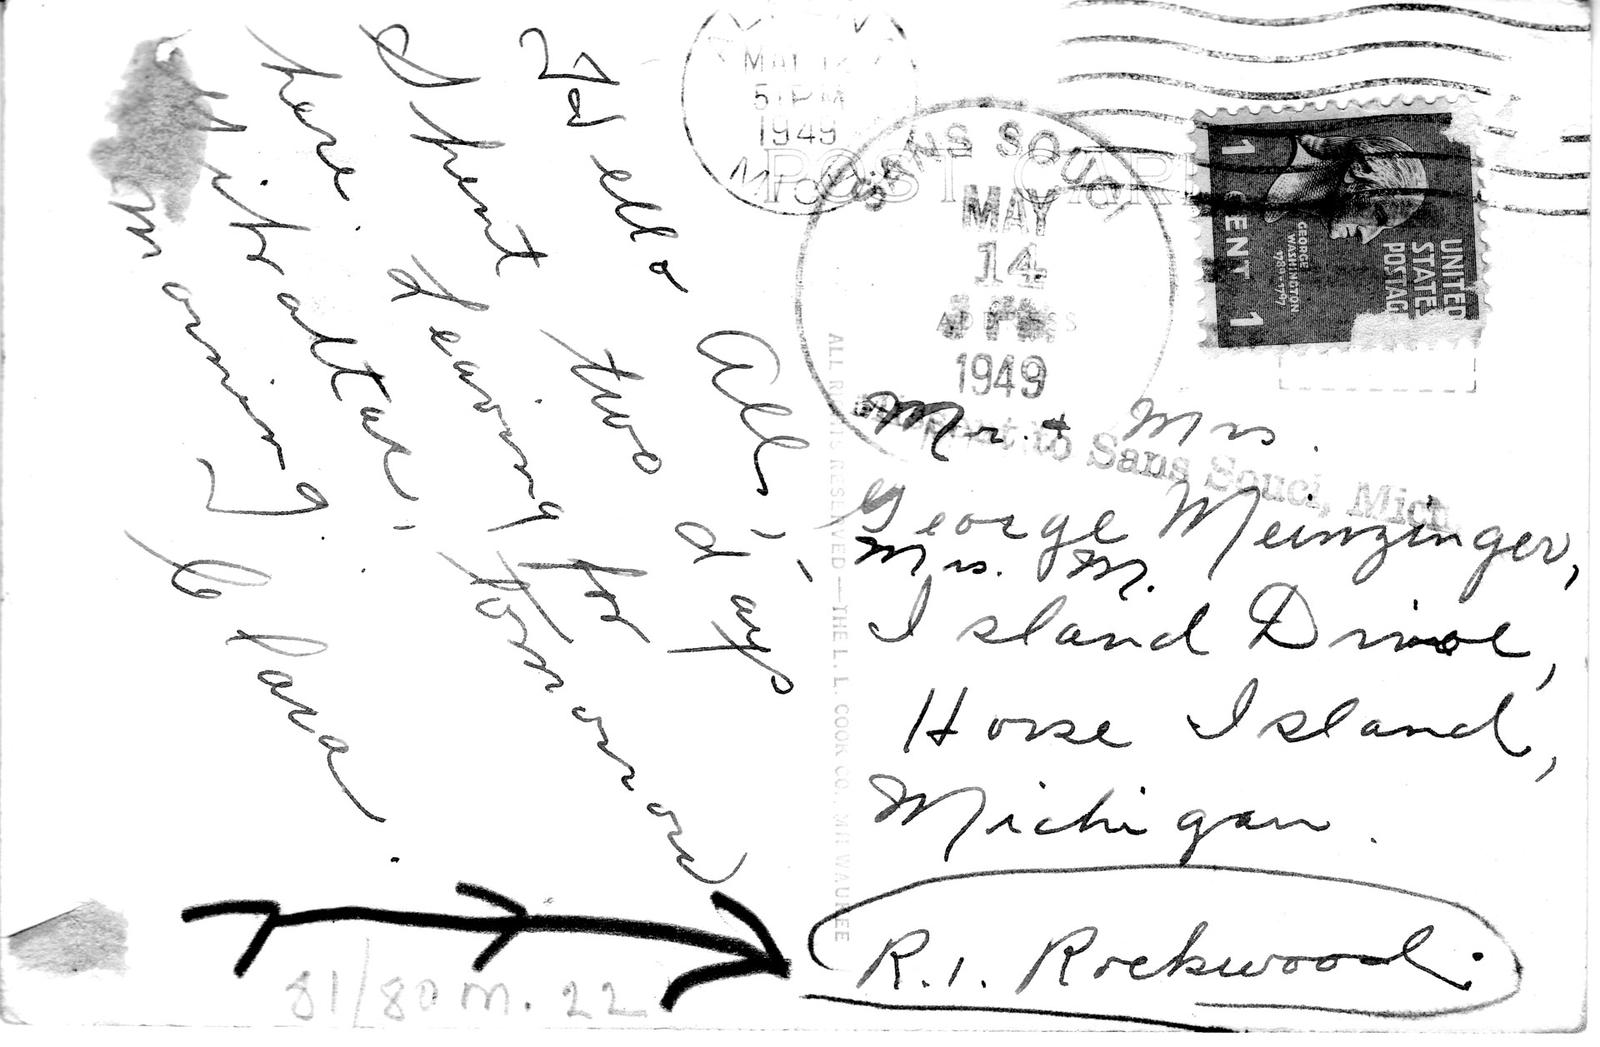 Hello All,-
Spent two days
here. Leaving for
Gibraltar, tomorrow
morning.
Clara.
MAY
5 PM
1949
POST CARD
SANS SOUCI
MAY
14
1949
UNITED
STATES
POSTAGE
GEORGE
WASHINGTON
1789-1797
1 CENT 1
to Sans Souci, Mich.
Mr. & Mrs.
George Meinzinger,
Mrs. M.
Island Drive,
Horse Island,
Michigan.
R.1. Rockwood.
ALL RIGHTS RESERVED—THE L. L. COOK CO., MILWAUKEE
81/80 m. 22